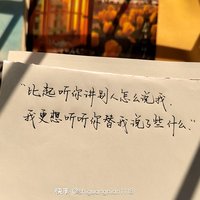 “比起听你讲别人怎么说我,
我更想听听你替我说了些什么.”
快手